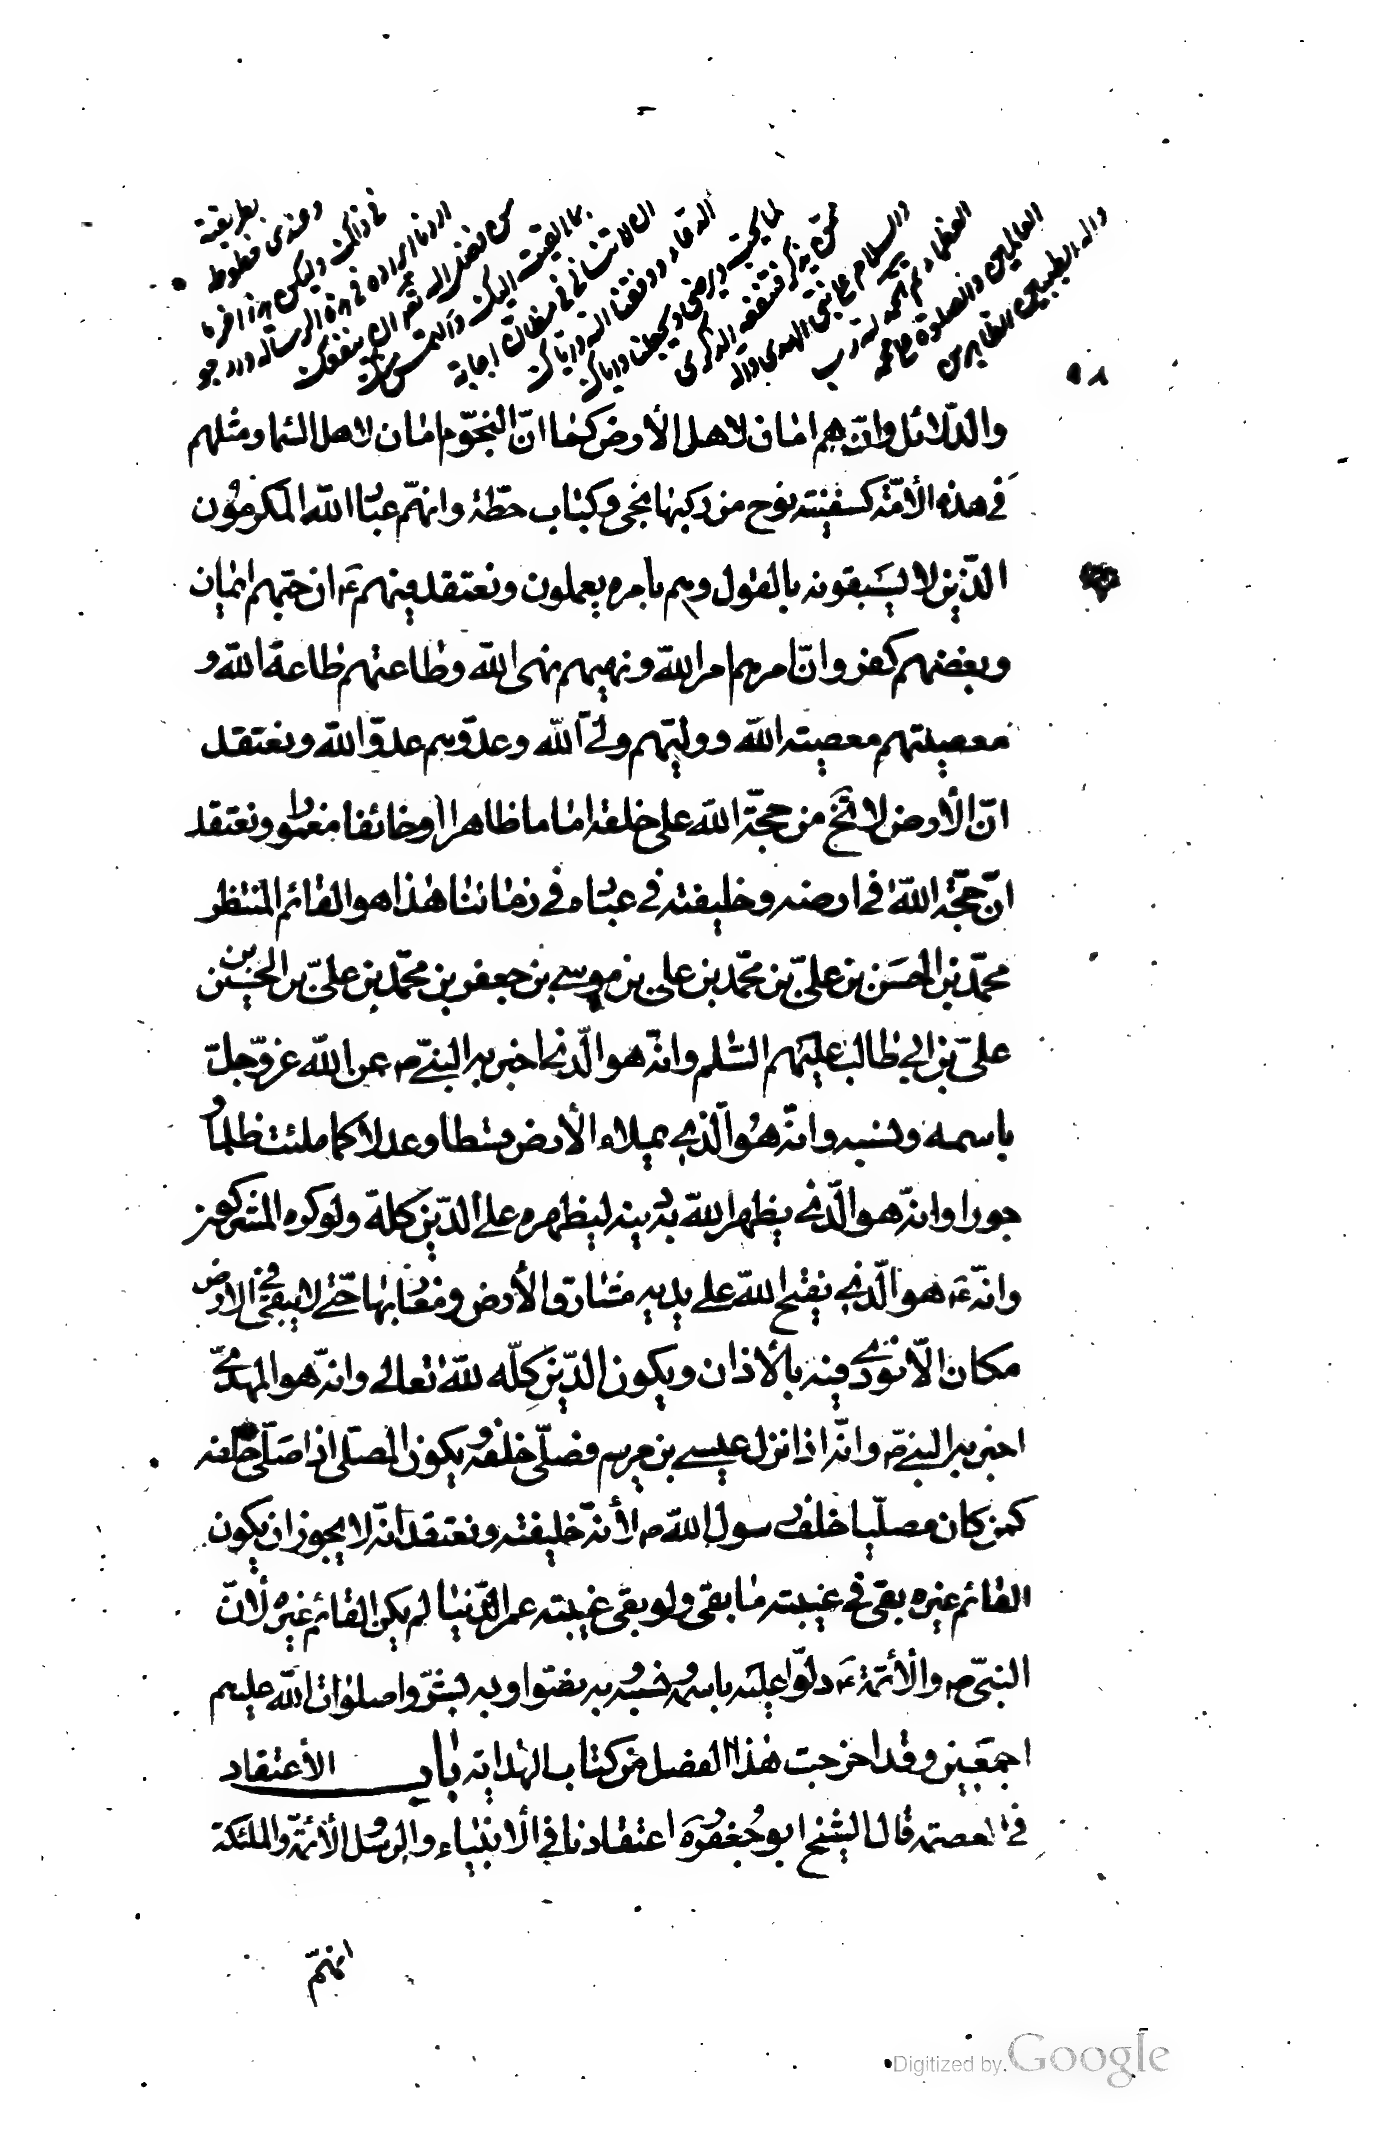 بطريقته
وعندى فظوظه
فى ذلك وليكن هذا اخر ما
اردنا ايراده فى هذه الرسالة ونرجو
من فضل الله ثم ان ينفعك
بما القيت اليك والتمس منك
ان لا تنسانى فى مظان اجابة
الدعاء ووفقنا الله واياك
لما يحب ويرضى ويجعلنا واياك
ممن يذكر فتنفعه الذكرى
والسلام على من اتبع الهدى واله
العظماء ثم الحمد لله رب
العالمين والصلوة على محمد
واله الطيبين الطاهرين
٥٨
والدّلائل وانّهم امان لاهل الأرض كما انّ النجوّم امان لاهل السّما ومثلهم
فى هذه الأمّة كسفينته نوح من ركبها نجى وكباب حطّة وانهّم عباد الله المكرمون
الّذين لا يسَبقونه بالقول وهم بامره يعملون ونعتقد فيهم ع ان حبّهم ايمان
وبغضهم كفر وانّ امرهم امر الله ونهيهم نهى الله وطاعتهم طاعة الله و
معصيتهم معصيته الله ووليّهم ولىّ الله وعدوّهم عدوّ الله ونعتقد
انّ الأرض لا تخ من حجّة الله على خلقه اماما ظاهرا او خائفا مغمورا ونعتقد
انّ حجّة الله فى ارضه وخليفته فى عباده فى زماننا هذا هو القائم المنتظر
محمّد بن الحسَن بن علىّ بن محمّد بن على بن موسى بن جعفر بن محمّد بن علىّ بن الحسين بن
علىّ بن ابى طالب عليهم السّلم وانّه هو الّذى اخبر به النبىّ ص عن الله عزّ وجلّ
باسمه ونسبه وانّه هو الّذى يملاء الأرض قسطا وعدلا كما ملئت ظلما و
جورا وانّه هو الّذى يظهر الله به دينه ليظهره على الدّين كلّه ولو كره المشركون
وانّه ع هو الّذى يفتح الله على يديه مشارق الأرض ومغاربها حتّى لا يبقى فى الارض
مكان الّا نودى فيه بالأذان ويكون الدّين كلّه لله تعالى وانّه هو المهدىّ
اخبر به النبى ص وانّه اذا نزل عيسى بن مريم فصلّى خلفه ويكون المصلّى اذا صلّى خلفه
كمن كان مصليّا خلف رسول الله ص لأنّه خليفته ونعتقد انّه لا يجوز ان يكون
القائم غيره بقى فى غيبته ما بقى ولو بقى غيبته عمر الدّنيا لم يكن القائم غيره لأنّ
النبىّ ص والأئمّة ع دلّوا عليَه باسمه ونسبه به نصّوا وبه بشّروا صلوات الله عليهم
اجمعَين وقد اخرجت هذا الفصل من كتاب الهداية باب الأعتقاد
فى العصمة قال الشيخ ابو جعفر ره اعتقادنا فى الأنبياء والرسُل والأئمّة والملئكة
انهّم
Digitized by Google